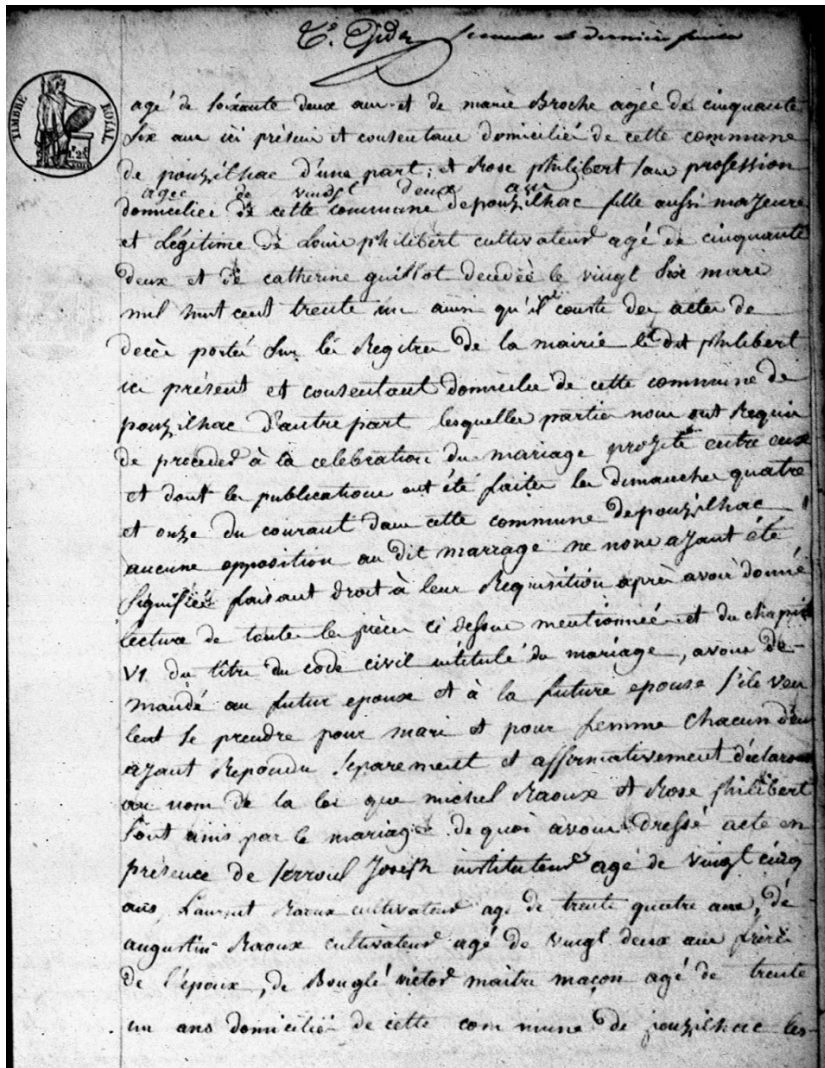 seconde et dernier feuille
TIMBRE ROYAL
agé de soixante deux ans et de marie Broche agée de cinquante
six ans ici présens et consentans domiciliés de cette commune
de pouzilhac d'une part; et Rose philibert sans profession
agée de vingt deux ans
domiciliée de cette commune de pouzilhac fille aussi majeure
et Légitime de Louis philibert cultivateur agé de cinquante
deux et de catherine guillot decedée le vingt six mars
mil huit cent trente un ainsi qu'il conste des actes de
decès portés sur les Registres de la mairie le dit philibert
ici présent et consentant domicilié de cette commune de
pouzilhac d'autre part lesquelles parties nous ont Requis
de proceder à la celebration du mariage projeté entre eux
et dont les publications ont été faites les dimanches quatre
et onze du courant dans cette commune de pouzilhac
aucune opposition au dit marriage ne nous ayant été
signifiée faisant droit à leur Requisition après avoir donné
lecture de toutes les pièces ci dessus mentionnées et du chapitre
VI du titre du code civil intitulé du mariage, avons de-
mandé au futur epoux et à la future epouse s'ils veu
lent se prendre pour mari et pour femme chacun d'eux
ayant Repondu separement et affirmativement déclarons
au nom de la loi que michel Raoux et Rose philibert
sont unis par le mariage de quoi avons dressé acte en
présence de Joseph instituteur agé de vingt cinq
ans, Laurent Raoux cultivateur agé de trente quatre ans, de
augustin Raoux cultivateur agé de vingt deux ans frères
de l'époux, de Bouglé victor maitre maçon agé de trente
un ans domiciliés de cette commune de pouzilhac les-